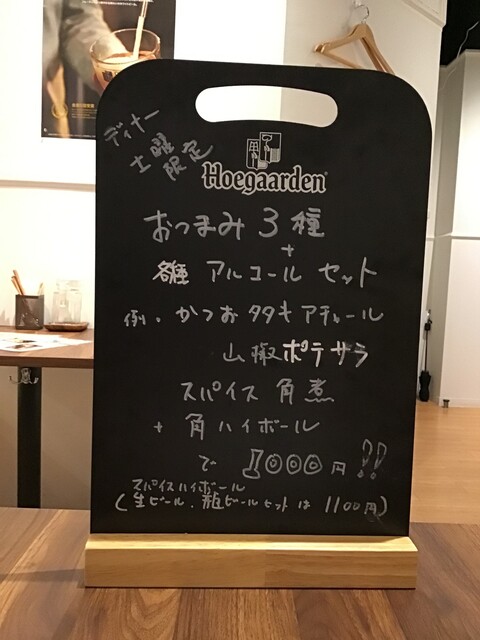 ディナー
土曜
限定
Hoegaarden
おつまみ3種
+
各種 アルコール セット
例. かつおタタキアチャール
山椒ポテサラ
スパイス角煮
+ 角ハイボール
で 1000円!!
スパイスハイボール
(生ビール、瓶ビールセットは 1100円)